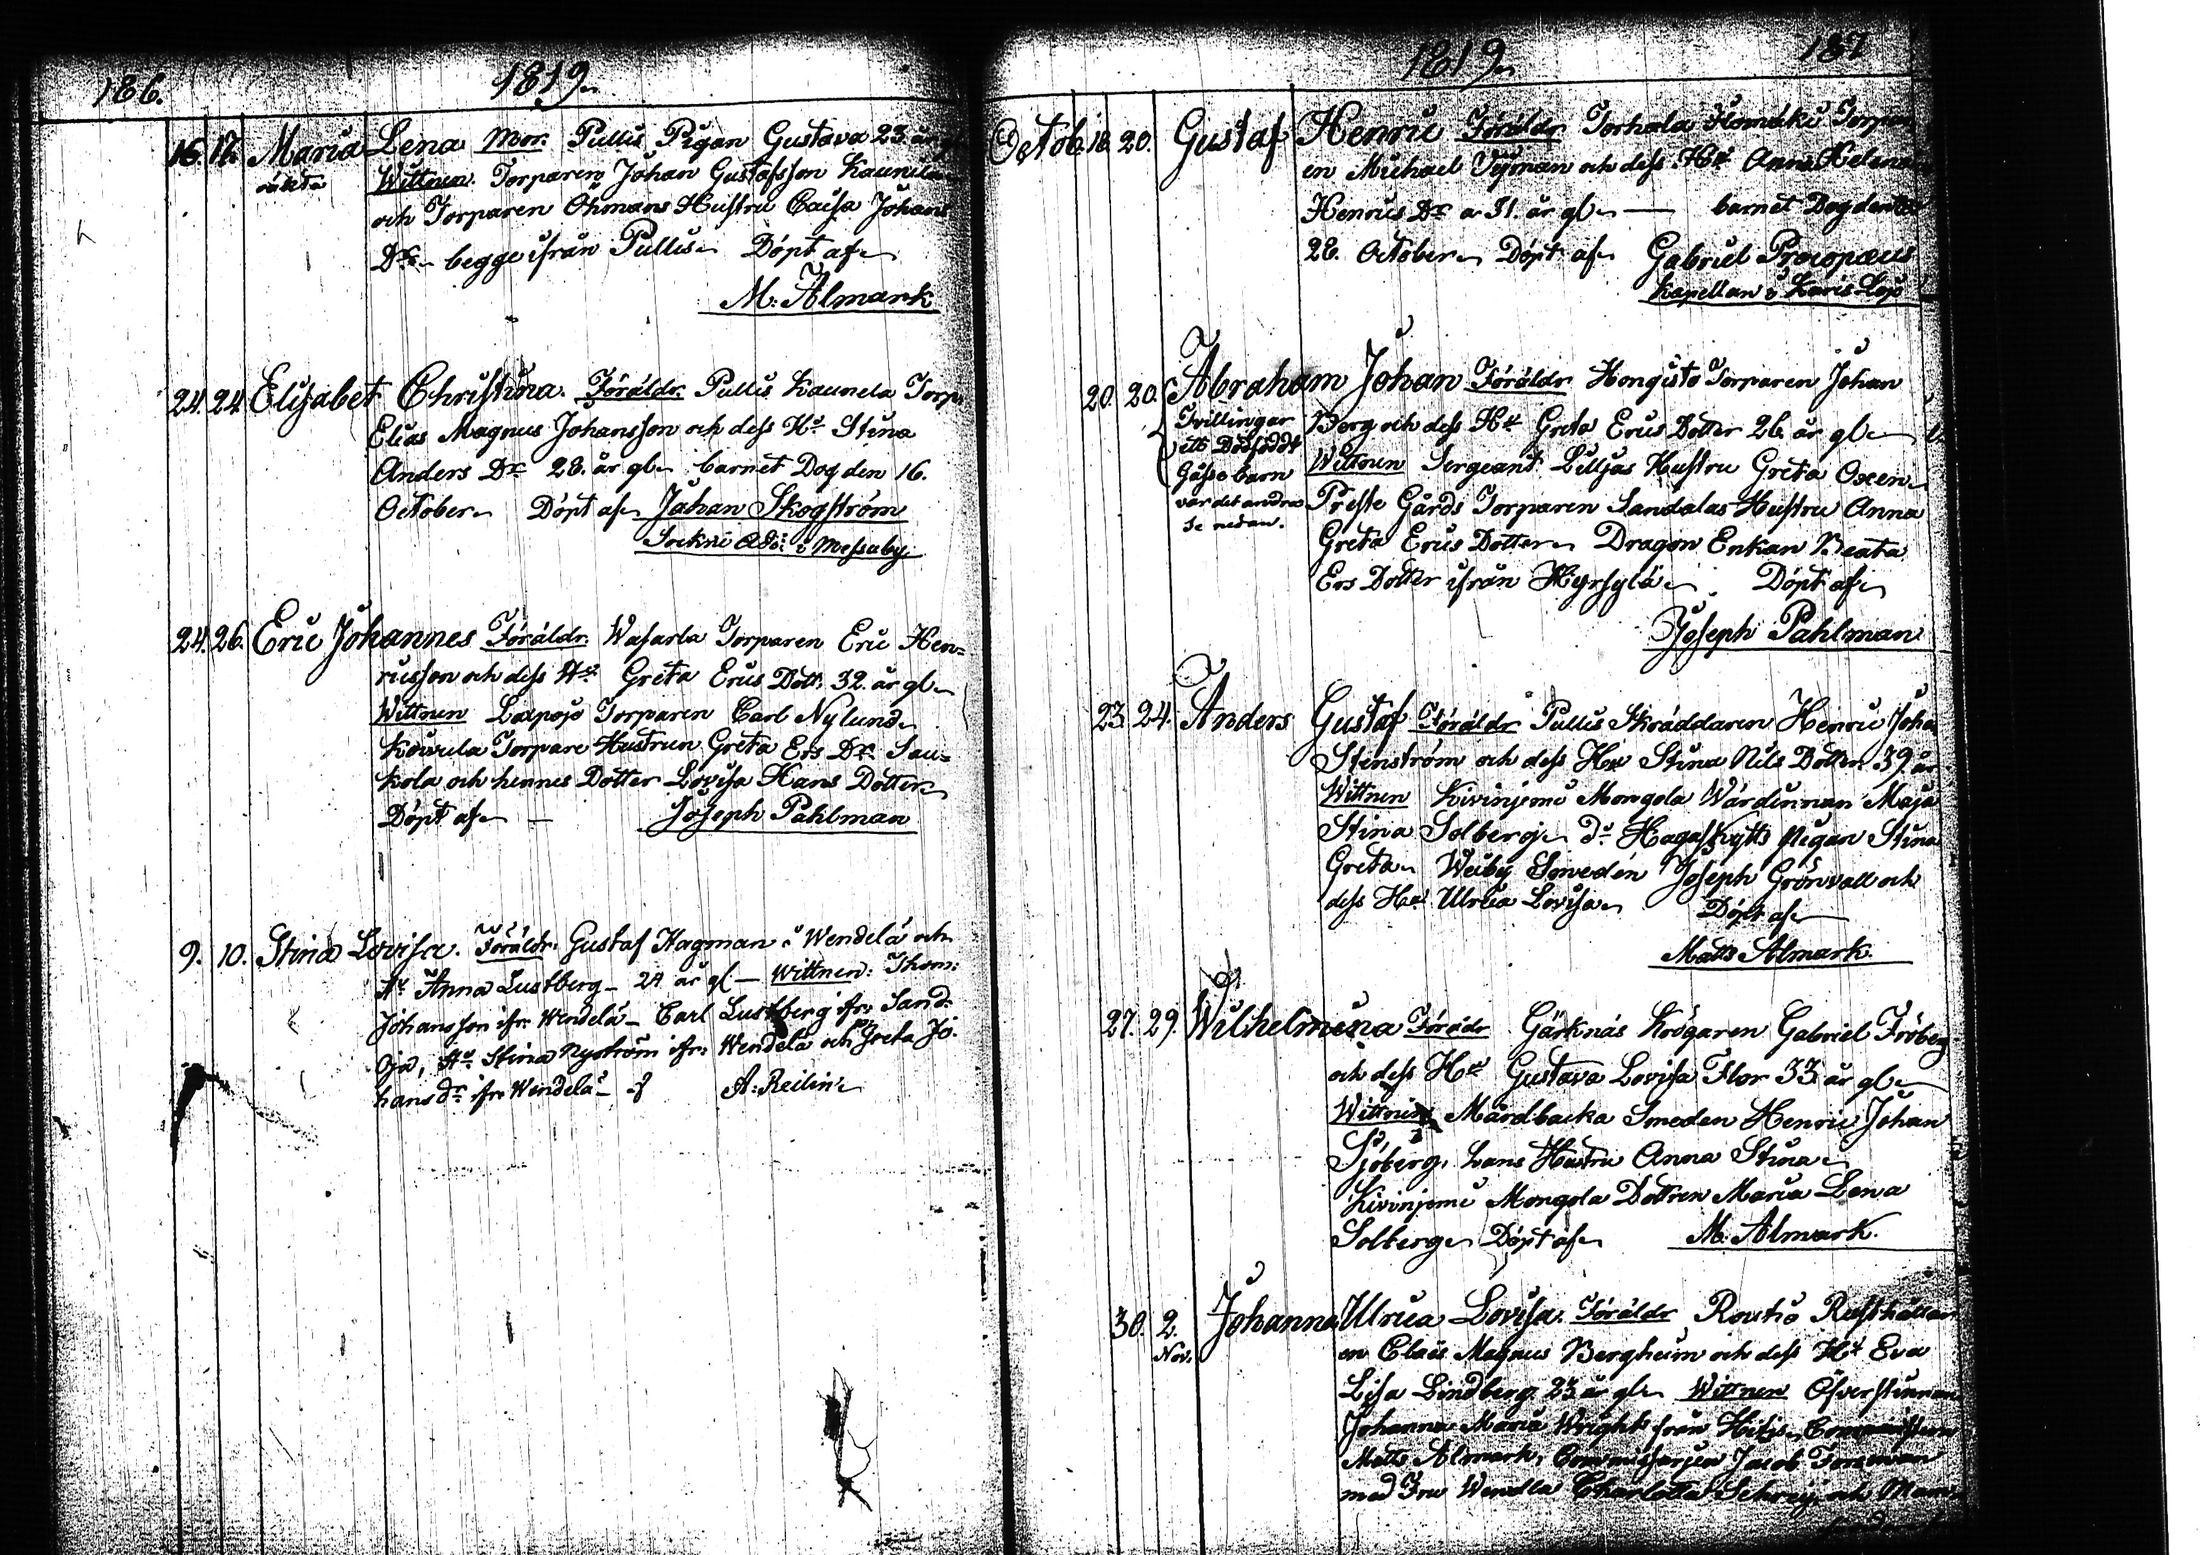 186. 1819.
16. 17. Maria Lena Mor. Pullis Pigan Gustava 23. år
oäkta Wittnen. Torparen Johan Gustafsson Kaunela
och Torparen Öhmans Hustru Caisa Johans
Dr. begge ifrån Pullis Döpt af
M. Almark
24. 24. Elisabet Christina. Föräldr. Pullis Kaunela Torp.
Elias Magnus Johansson och dess Hu Stina
Anders Dr 28. år gl. barnet Dog den 16.
October Döpt af Johan Skogström
Sockne Adj: i Messuby
24. 26. Eric Johannes Föräldr. Wasarla Torparen Eric Hen=
ricsson och dess Hu Greta Erics Dott. 32. år gl.
Wittnen Laxpojo Torparen Carl Nylund
Kouvula Torpare Hustrun Greta Ers Dr. Sau=
kola och hennes Dotter Lovisa Hans Dotter
Döpt af — Joseph Pahlman
9. 10. Stina Lovisa. Föräldr. Gustaf Hagman i Wendelä och
Hu Anna Lustberg - 24 år gl - Wittnen: Thom:
Johansson ifr. Wendelä - Carl Lustberg ifr. Sand:
öja, Hu Stina Nyström ifr: Wendelä och Greta Jo.
hans dr ifr. Wendelä - af A: Reilin
1819. 187
Octob. 18. 20. Gustaf Henric Föräldr Torhola Torpar
en Michael Tyman och dess Hu Anna Helena
Henrics Dr a 31. år gl. — barnet Dog den
28. October Döpt af Gabriel Procopæus
Kapellan i Karis Lojo
20. 20. Abraham Johan Föräldr Hongisto Torparen Johan
Tvillingar Berg och dess Hu Greta Erics Dotter 26. år gl.
ett Dödfödt Wittnen Sergeant Liljas Hustru Greta Oxen
Gåsse barn Preste Gårds Torparen Sandalas Hustru Anna
var det andra Greta Erics Dotter Dragon Enkan Beata
se nedan. Ers Dotter ifrån Hyrsylä Döpt af
Joseph Pahlman
23. 24. Anders Gustaf Föräldr Pullis Skräddaren Henric Joha
Stenström och dess Hu Stina Nils Dotter 39 år
Wittnen Kivinjemi Mongola Wärdinnan Maja
Stina Solberg do Hagaskytts Pigan Stina
Greta Weiby Smeden Joseph Grönvall och
dess Hu Ulrica Lovisa Döpt af
Matts Almark.
27. 29. Wilhelmina Föräldr Gärknäs Krögaren Gabriel Fröberg
och dess Hu Gustava Lovisa Flor 33 år gl.
Wittnen Mårdbacka Smeden Henric Johan
Sjöberg, hans Hustru Anna Stina
Kivinjemi Mongola Dottren Maria Lena
Solberg Döpt af M. Almark.
30. 2. Johanna Ulrica Lovisa. Föräldr Routio Rusthållar
Nov. en Claës Magnus Bergheim och dess Hu Eva
Lisa Lindberg 23 år gl. Wittnen Öfverstinnan
Johanna Maria Wright från
Matts Almark, Commissarjen Jacob Forsman
med Fru Wendla Charlotta och